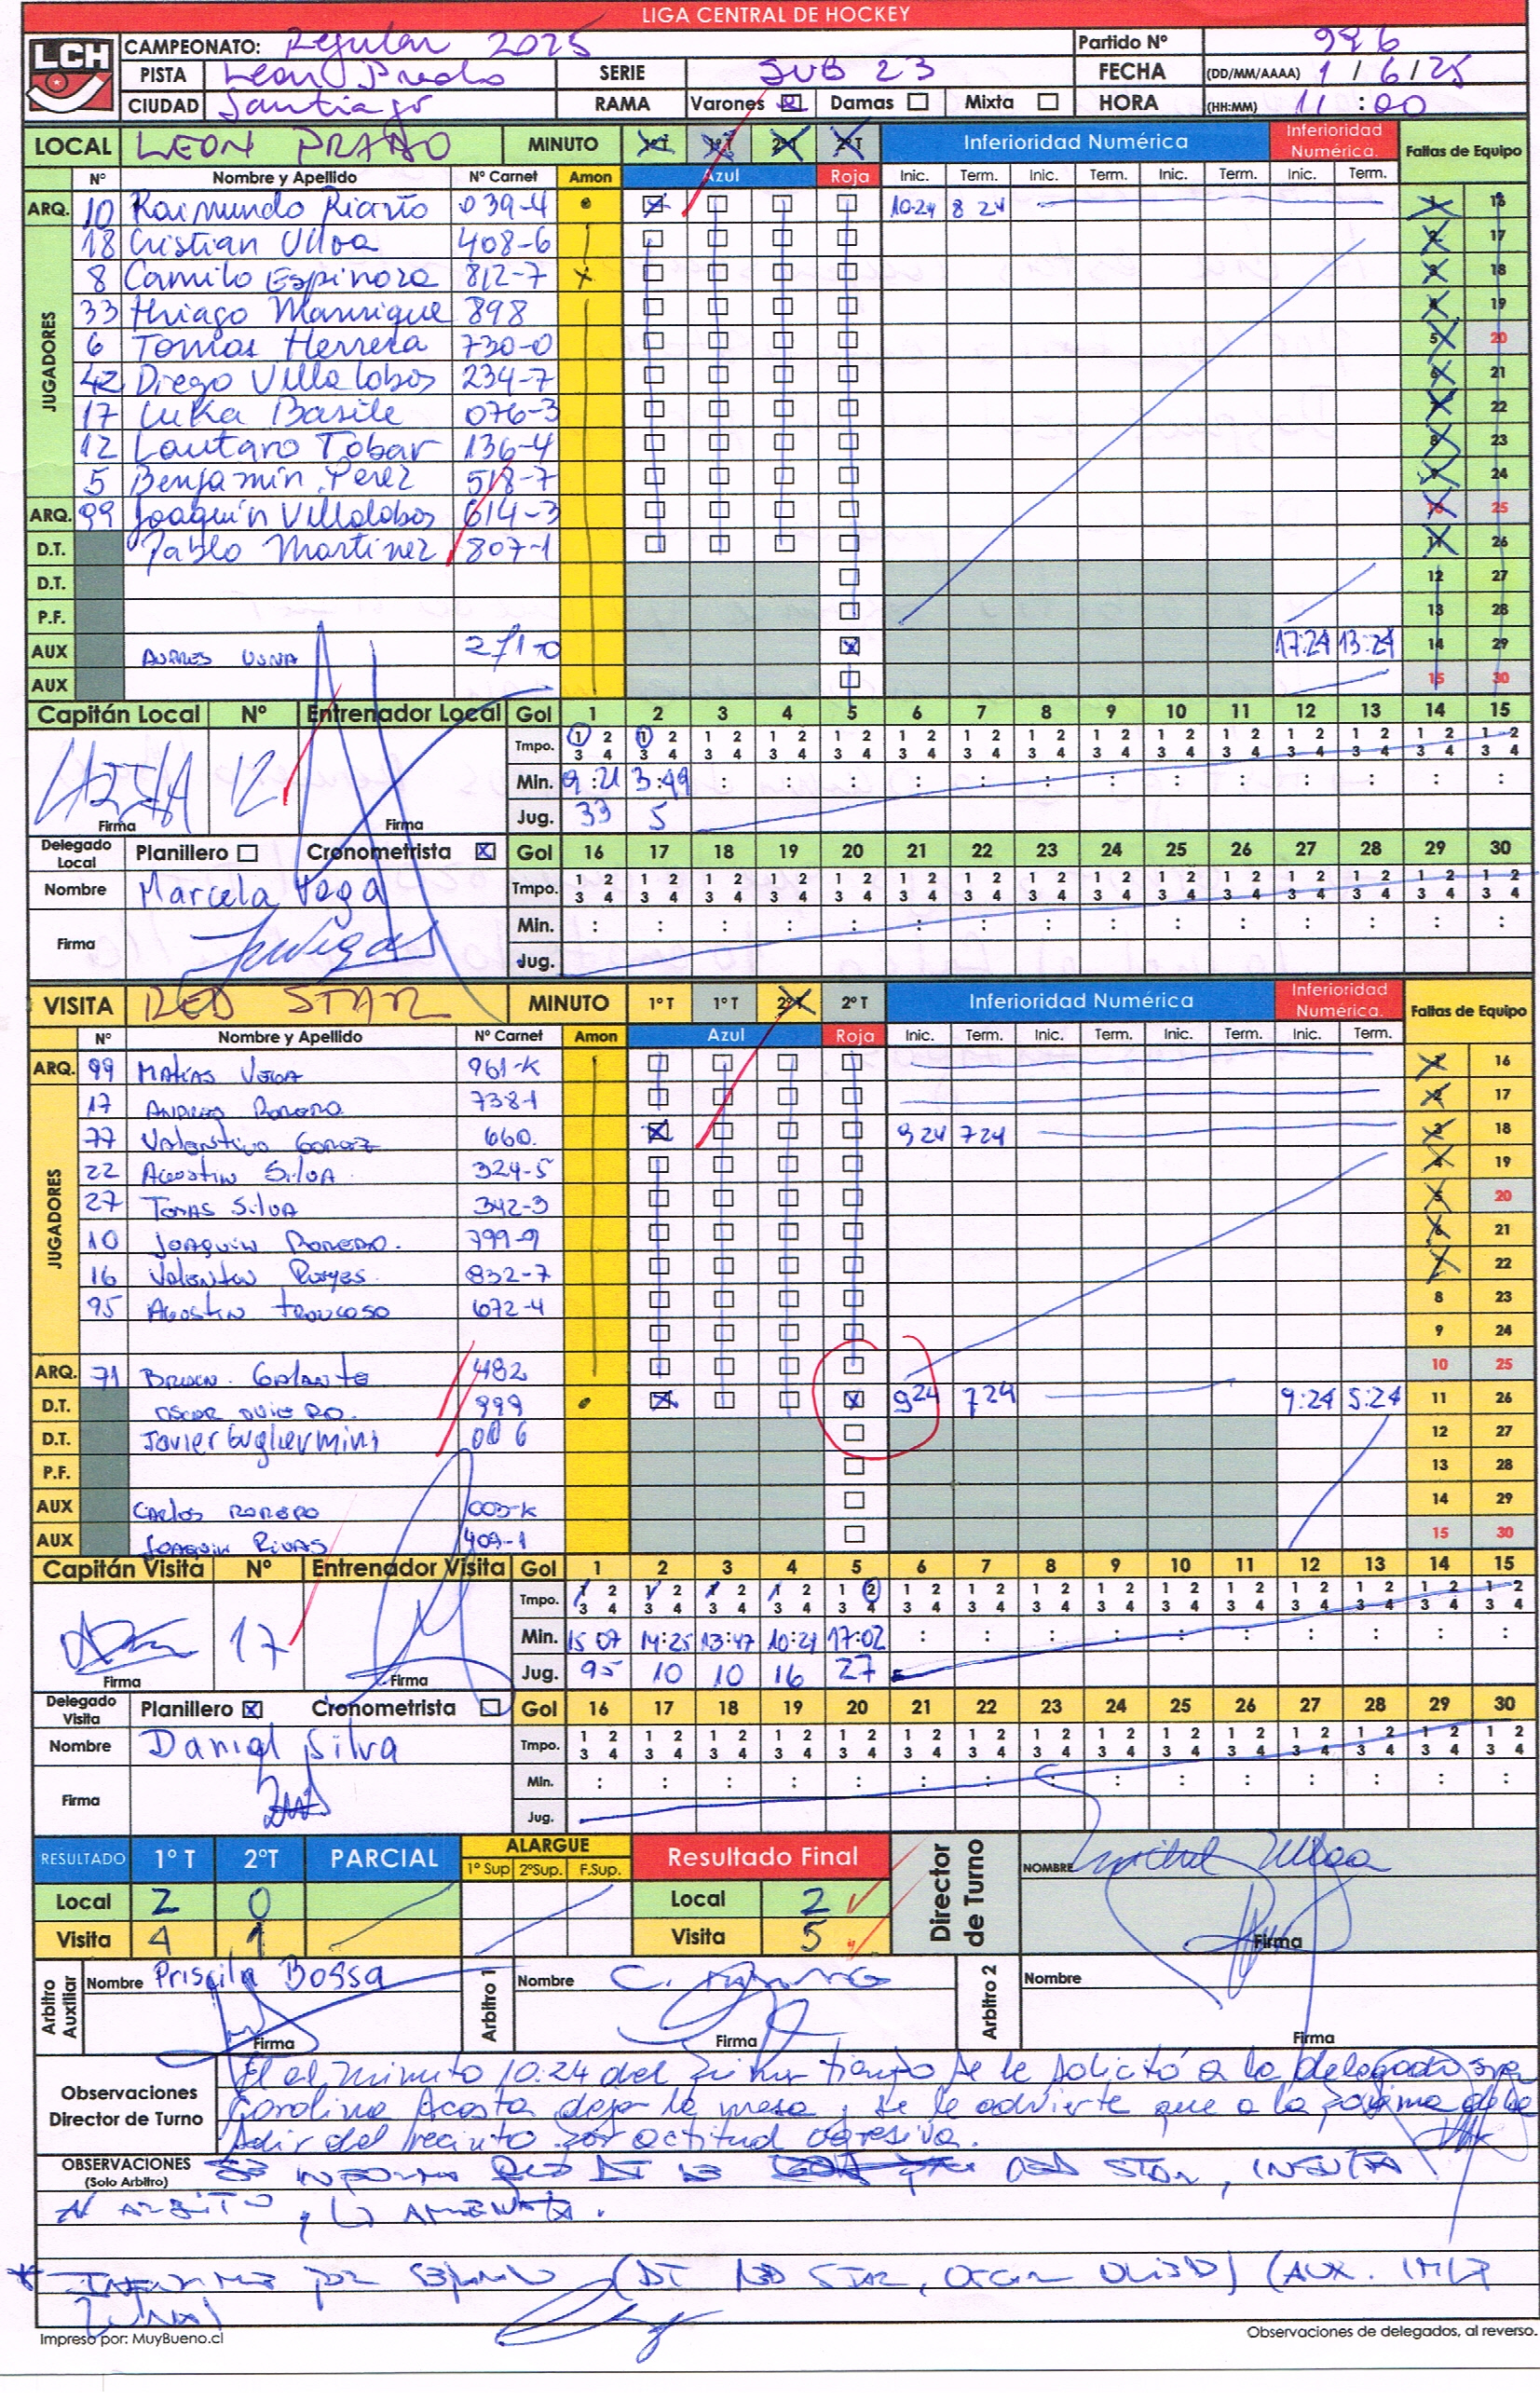 LIGA CENTRAL DE HOCKEY
LCH
CAMPEONATO: Regular 2025 Partido Nº 996
PISTA Leon Prado SERIE SUB 23 FECHA (DD/MM/AAAA) 1 / 6 / 25
CIUDAD Santiago RAMA Varones Damas Mixta HORA (HH:MM) 11 : 00
LOCAL LEON PRADO MINUTO 1º T 1º T 2º T 2º T Inferioridad Numérica Inferioridad Numérica. Fallas de Equipo
Nº Nombre y Apellido Nº Carnet Amon Azul Roja Inic. Term. Inic. Term. Inic. Term. Inic. Term.
ARQ. 10 Raimundo Riaño 039-4 10:24 8 24 1 16
JUGADORES
18 Cristian Ulloa 408-6 2 17
8 Camilo Espinoza 812-7 3 18
33 Thiago Manrique 898 4 19
6 Tomas Herrera 730-0 5 20
42 Diego Villalobos 234-7 6 21
17 Luka Basile 076-3 7 22
12 Lautaro Tobar 136-4 8 23
5 Benjamín Perez 518-7 9 24
ARQ. 99 Joaquín Villalobos 614-3 10 25
D.T. Pablo Martinez 807-1 11 26
D.T. 12 27
P.F. 13 28
AUX 271-0 17:24 13:24 14 29
AUX 15 30
Capitán Local Nº Entrenador Local Gol 1 2 3 4 5 6 7 8 9 10 11 12 13 14 15
Tmpo. 1 2 3 4
12 Min. 9:21 3:49
Firma Firma Jug. 33 5
Delegado Local Planillero Cronometrista Gol 16 17 18 19 20 21 22 23 24 25 26 27 28 29 30
Nombre Marcela Vega Tmpo. 1 2 3 4
Firma Min.
Jug.
VISITA RED STAR MINUTO 1º T 1º T 2º T 2º T Inferioridad Numérica Inferioridad Numérica. Fallas de Equipo
Nº Nombre y Apellido Nº Carnet Amon Azul Roja Inic. Term. Inic. Term. Inic. Term. Inic. Term.
ARQ. 99 Matias Vega 961-K 1 16
JUGADORES
17 Andres Romero 738-1 2 17
77 Valentino Gomez 660. 924 724 3 18
22 Agostin Silva 324-5 4 19
27 Tomas Silva 342-3 5 20
10 Joaquin Romero. 799-9 6 21
16 Valentin Reyes 832-7 7 22
95 Agostin Troncoso 672-4 8 23
9 24
ARQ. 71 Galante 482 10 25
D.T. Oscar 999 924 724 9:24 5:24 11 26
D.T. Javier Gugliermini 006 12 27
P.F. 13 28
AUX Carlos Romero 003-K 14 29
AUX Joaquin Rivas 409-1 15 30
Capitán Visita Nº Entrenador Visita Gol 1 2 3 4 5 6 7 8 9 10 11 12 13 14 15
Tmpo. 1 2 3 4
17 Min. 15 07 14:25 13:47 10:24 17:02
Firma Firma Jug. 95 10 10 16 27
Delegado Visita Planillero Cronometrista Gol 16 17 18 19 20 21 22 23 24 25 26 27 28 29 30
Nombre Daniel Silva Tmpo. 1 2 3 4
Firma Min.
Jug.
RESULTADO 1º T 2ºT PARCIAL ALARGUE 1º Sup 2ºSup. F.Sup. Resultado Final Director de Turno NOMBRE
Local 2 0 Local 2
Visita 4 1 Visita 5 Firma
Arbitro Auxiliar Nombre Priscila Bossa Arbitro 1 Nombre Arbitro 2 Nombre
Firma Firma Firma
Observaciones Director de Turno
El el minuto 10:24 del primer tiempo se le solicitó a la delegado
Carolina Acosta dejar la mesa, se le advierte que a la próxima debe
salir del recinto por actitud agresiva.
OBSERVACIONES (Solo Arbitro) Se informa RED STAR, INSULTA
AL ARBITRO, LO AMENAZA.
* Informe por separado (DT RED STAR, Oscar) (AUX.
Impreso por: MuyBueno.cl Observaciones de delegados, al reverso.